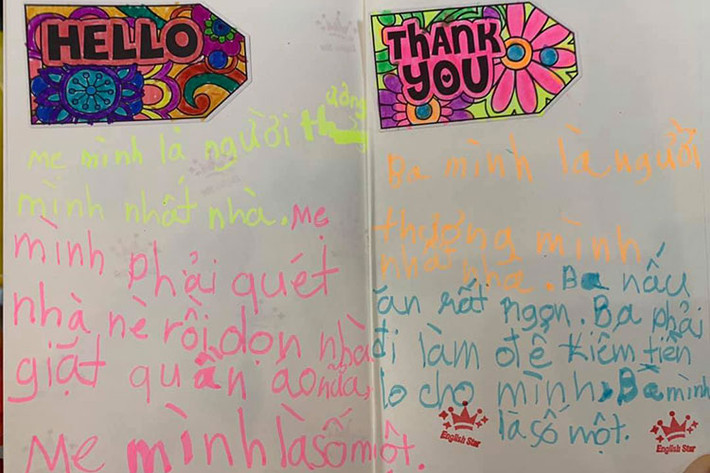 HELLO
Mẹ mình là người thương
mình nhất nhà. Mẹ
mình phải quét
nhà nè rồi dọn nhà
giặt quần áo nữa,
Mẹ mình là số một.
THANK
YOU
Ba mình là người
thương mình
nhất nhà. Ba nấu
ăn rất ngon. Ba phải
đi làm để kiếm tiền
lo cho mình, Ba mình
là số một.
English Star
English Star